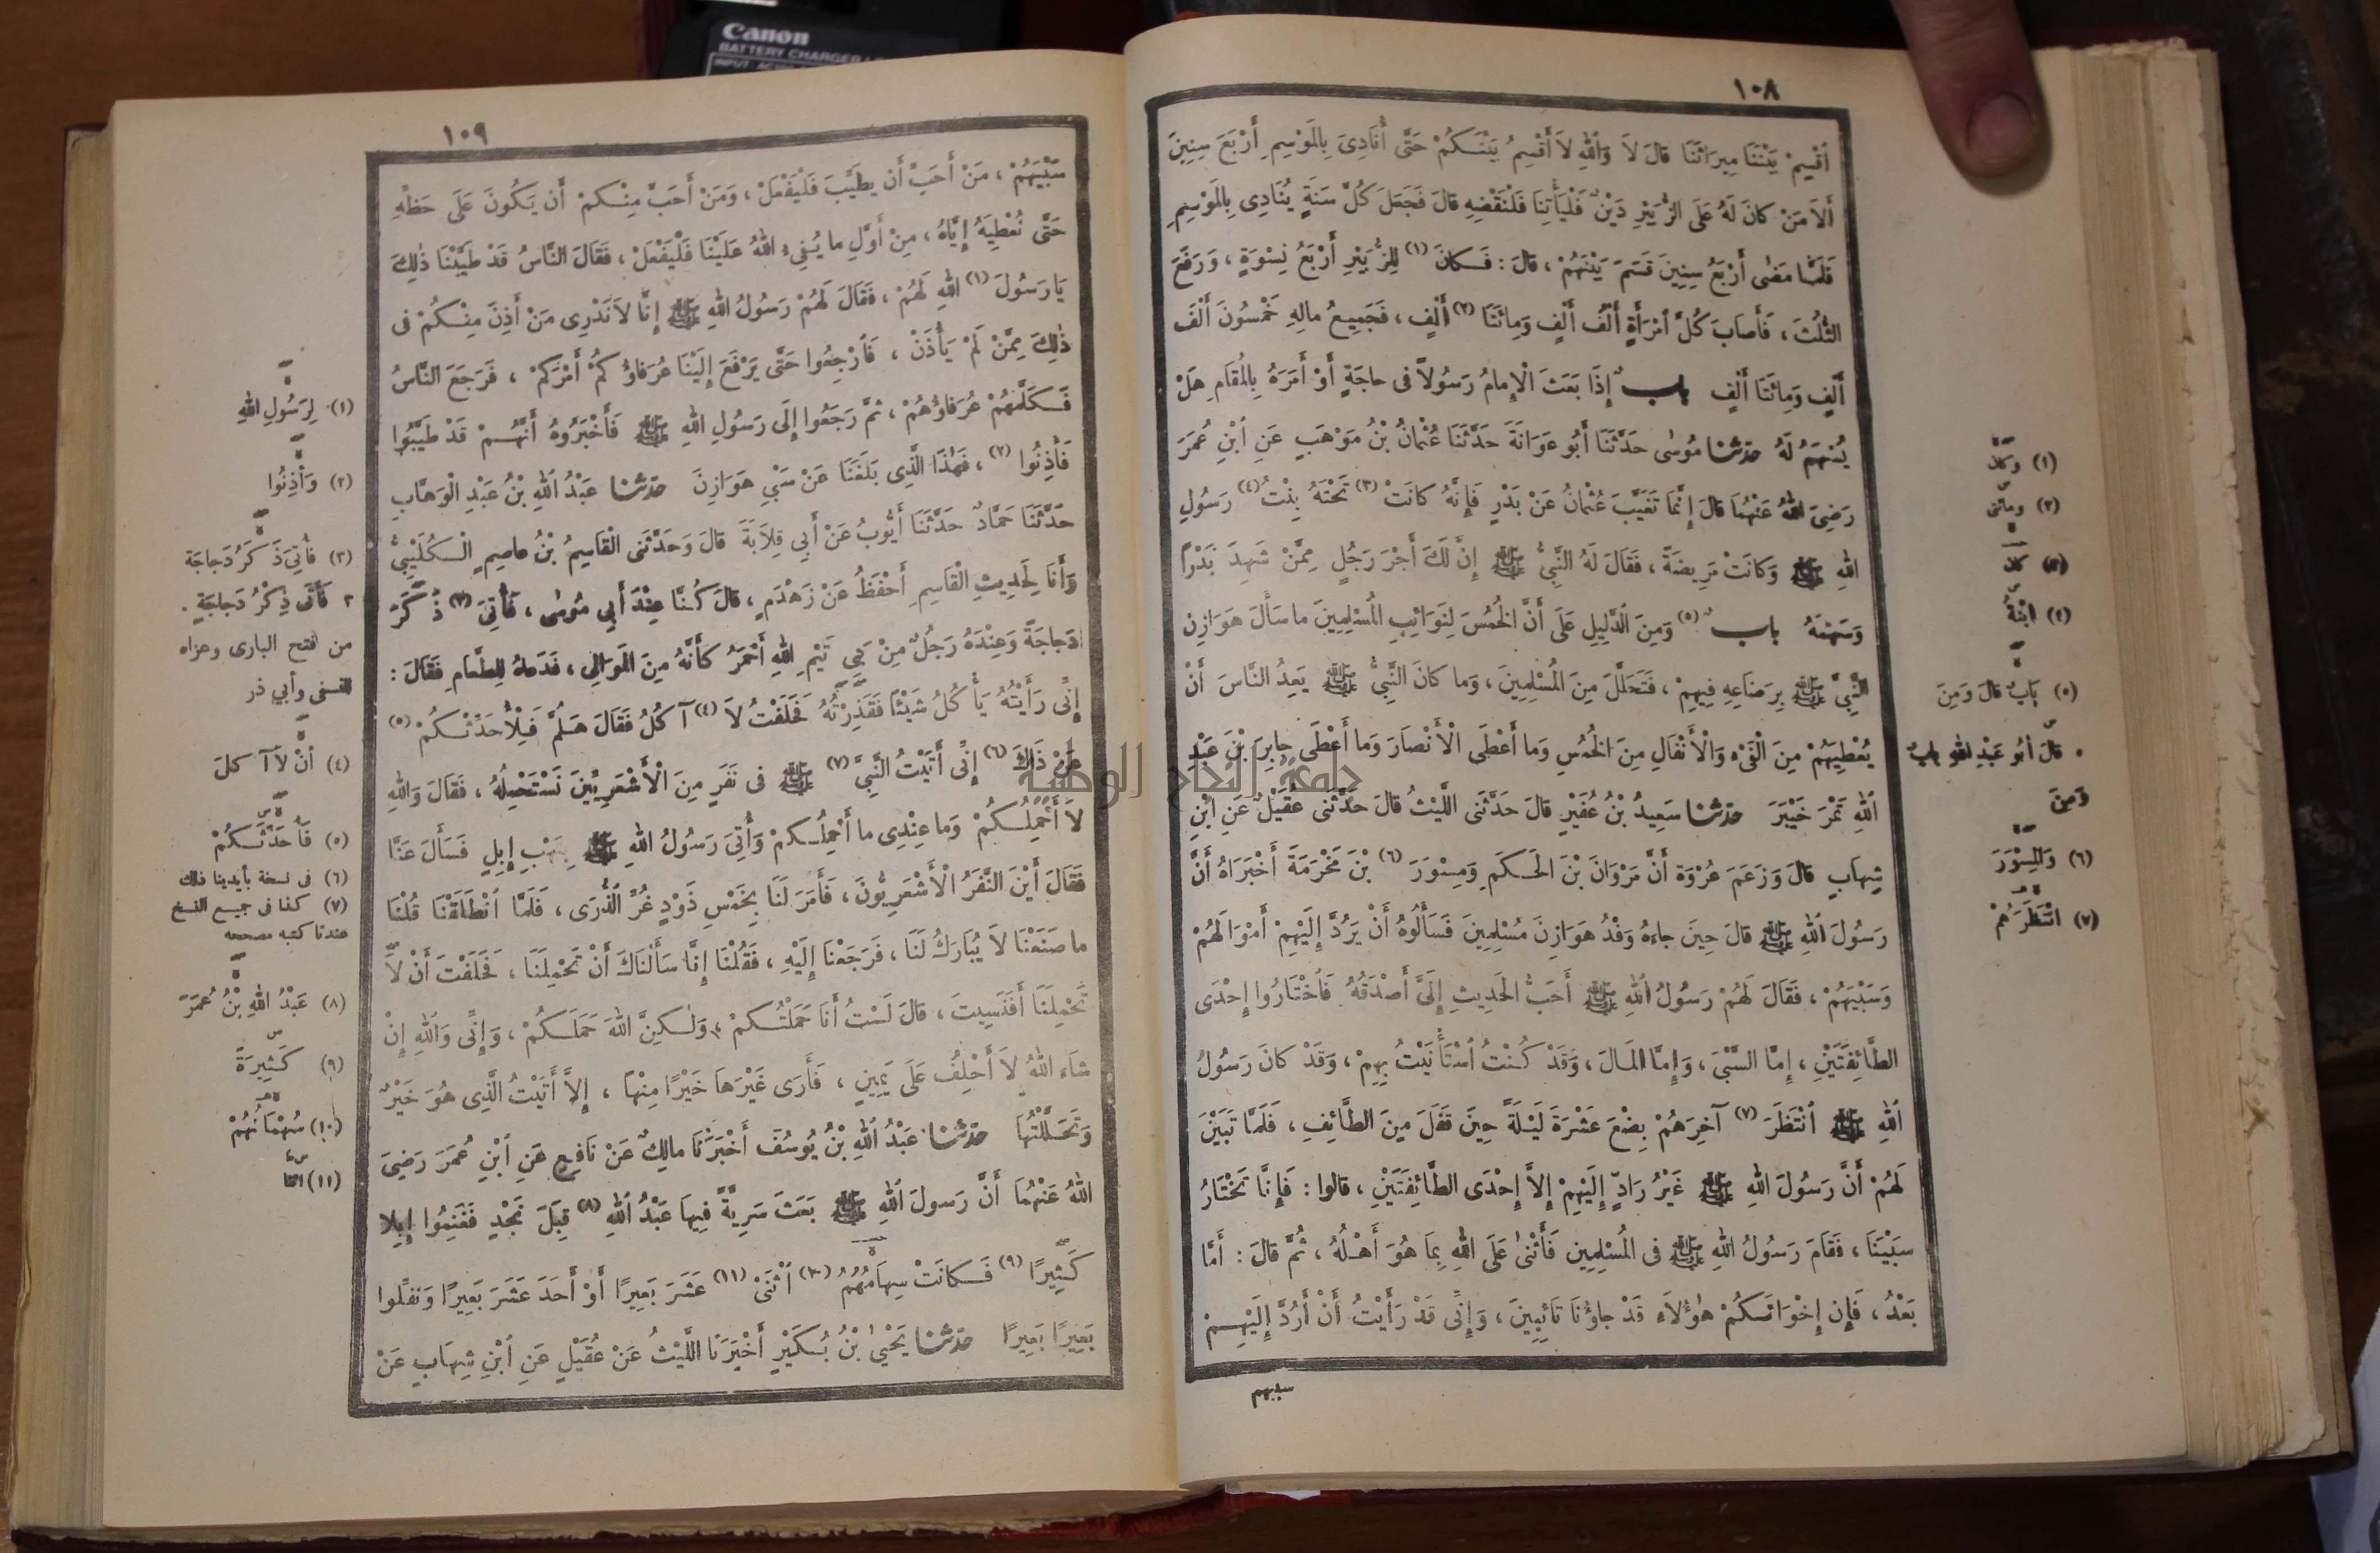 Canon
BATTERY CHARGER
INPUT
١٠٨
اقْسِمْ بَيْنَنَا مِيرَاثَنَا قالَ لاَ وَاللهِ لاَ أَقْسِمُ بَيْنَكُمْ حَتَّى أُنَادِىَ بِالمَوْسِمِ أَرْبَعَ سِنِينَ
أَلاَ مَنْ كانَ لَهُ عَلَى الزُّبَيْرِ دَيْنٌ فَلْيَأْتِنَا فَلْنَقْضِهِ قالَ فَجَعَلَ كُلَّ سَنَةٍ يُنَادِى بِالمَوْسِمِ
فَلَمَّا مَضٰى أَرْبَعُ سِنِينَ قَسَمَ بَيْنَهُمْ ، قالَ : فَكانَ (١) لِلزُّبَيْرِ أَرْبَعُ نِسْوَةٍ ، وَرَفَعَ
الثُّلُثَ ، فَأَصَابَ كُلَّ امْرَأَةٍ أَلْفُ أَلْفٍ وَمِائَتَا (٢) أَلْفٍ ، فَجَمِيعُ مالِهِ خَمْسُونَ أَلْفَ
أَلْفٍ وَمِائَتَا أَلْفٍ باب إِذَا بَعَثَ الْإِمامُ رَسُولاً فى حاجَةٍ أَوْ أَمَرَهُ بِالمُقَامِ هَلْ
يُسْهَمُ لَهُ حدثنا مُوسٰى حَدَّثَنَا أَبُو عَوَانَةَ حَدَّثَنَا عُثْمانُ بْنُ مَوْهَبٍ عَنِ ابْنِ عُمَرَ
رَضِيَ اللهُ عَنْهُمَا قالَ إِنَّمَا تَغَيَّبَ عُثْمانُ عَنْ بَدْرٍ فَإِنَّهُ كانَتْ (٣) تَحْتَهُ بِنْتُ (٤) رَسُولِ
اللهِ ﷺ وَكانَتْ مَرِيضَةً ، فَقَالَ لَهُ النَّبِيُّ ﷺ إِنَّ لَكَ أَجْرَ رَجُلٍ مِمَّنْ شَهِدَ بَدْرًا
وَسَهْمَهُ باب (٥) وَمِنَ الدَّلِيلِ عَلَى أَنَّ الخُمُسَ لِنَوَائِبِ المُسْلِمِينَ ما سَأَلَ هَوَازِنُ
النَّبِيَّ ﷺ بِرَضَاعِهِ فِيهِمْ ، فَتَحَلَّلَ مِنَ المُسْلِمِينَ ، وَما كانَ النَّبِيُّ ﷺ يَعِدُ النَّاسَ أَنْ
يُعْطِيَهُمْ مِنَ الْفَىْءِ وَالْأَنْفَالِ مِنَ الخُمُسِ وَما أَعْطَى الْأَنْصَارَ وَما أَعْطَى جابِرَ بْنَ عَبْدِ
اللهِ تَمْرَ خَيْبَرَ حدثنا سَعِيدُ بْنُ عُفَيْرٍ قالَ حَدَّثَنى اللَّيْثُ قالَ حَدَّثَنى عُقَيْلٌ عَنِ ابْنِ
شِهابٍ قالَ وَزَعَمَ عُرْوَةُ أَنَّ مَرْوَانَ بْنَ الحَكَمِ وَمِسْوَرَ (٦) بْنَ مَخْرَمَةَ أَخْبَرَاهُ أَنَّ
رَسُولَ اللهِ ﷺ قالَ حِينَ جاءَهُ وَفْدُ هَوَازِنَ مُسْلِمِينَ فَسَأَلُوهُ أَنْ يَرُدَّ إِلَيْهِمْ أَمْوَالَهُمْ
وَسَبْيَهُمْ ، فَقَالَ لَهُمْ رَسُولُ اللهِ ﷺ أَحَبُّ الحَدِيثِ إِلَىَّ أَصْدَقُهُ فَاخْتَارُوا إِحْدَى
الطَّائِفَتَيْنِ ، إِمَّا السَّبْىَ ، وَإِمَّا المَالَ ، وَقَدْ كُنْتُ اسْتَأْنَيْتُ بِهِمْ ، وَقَدْ كانَ رَسُولُ
اللهِ ﷺ انْتَظَرَ (٧) آخِرَهُمْ بِضْعَ عَشْرَةَ لَيْلَةً حِينَ قَفَلَ مِنَ الطَّائِفِ ، فَلَمَّا تَبَيَّنَ
لَهُمْ أَنَّ رَسُولَ اللهِ ﷺ غَيْرُ رَادٍّ إِلَيْهِمْ إِلاَّ إِحْدَى الطَّائِفَتَيْنِ ، قالُوا : فَإِنَّا نَخْتَارُ
سَبْيَنَا ، فَقَامَ رَسُولُ اللهِ ﷺ فى المُسْلِمِينَ فَأَثْنٰى عَلَى اللهِ بِمَا هُوَ أَهْلُهُ ، ثُمَّ قالَ : أَمَّا
بَعْدُ ، فَإِن إِخْوَانَكُمْ هٰؤُلاَءِ قَدْ جاؤُنَا تَائِبِينَ ، وَإِنِّى قَدْ رَأَيْتُ أَنْ أَرُدَّ إِلَيْهِمْ
سبيهم
(١) وكان
(٢) ومائتى
(٣) كان
(٤) ابْنَةُ
(٥) بَابٌ قالَ وَمِنَ
قالَ أَبُو عَبْدِ اللهِ بابٌ
وَمِنَ
(٦) وَالْمِسْوَرَ
(٧) انْتَظَرَهُمْ
١٠٩
سَبْيَهُمْ ، مَنْ أَحَبَّ أَن يطَيِّبَ فَلْيَفْعَلْ ، وَمَنْ أَحَبَّ مِنْكمْ أَن يَكُونَ عَلَى حَظِّهِ
حَتَّى نُعْطِيَهُ إِيَّاهُ ، مِنْ أَوَّلِ ما يُفِىءُ اللهُ عَلَيْنَا فَلْيَفْعَلْ ، فَقَالَ النَّاسُ قَدْ طَيَّبْنَا ذٰلِكَ
يَا رَسُولَ (١) اللهِ لَهُمْ ، فَقَالَ لَهُمْ رَسُولُ اللهِ ﷺ إِنَّا لاَ نَدْرِى مَنْ أَذِنَ مِنْكُمْ فى
ذٰلِكَ مِمَّنْ لَمْ يَأْذَنْ ، فَارْجِعُوا حَتَّى يَرْفَعَ إِلَيْنَا عُرَفاؤُكمُ أَمْرَكمْ ، فَرَجَعَ النَّاسُ
فَكَلَّمَهُمْ عُرَفاؤُهُمْ ، ثُمَّ رَجَعُوا إِلَى رَسُولِ اللهِ ﷺ فَأَخْبَرُوهُ أَنَّهُمْ قَدْ طَيَّبُوا
فَأَذِنُوا (٢) ، فَهٰذَا الَّذِى بَلَغَنَا عَنْ سَبْىِ هَوَازِنَ حدثنا عَبْدُ اللهِ بْنُ عَبْدِ الْوَهَّابِ
حَدَّثَنَا حَمَّادٌ حَدَّثَنَا أَيُّوبُ عَنْ أَبِى قِلاَبَةَ قالَ وَحَدَّثَنى الْقَاسِمُ بْنُ عاصِمٍ الْكُلَيْبِيُّ
وَأَنَا لِحَدِيثِ الْقَاسِمِ أَحْفَظُ عَنْ زَهْدَمٍ ، قالَ كُنَّا عِنْدَ أَبِى مُوسٰى ، فَأُتِىَ (٣) ذَكَرَ
دَجاجَةً وَعِنْدَهُ رَجُلٌ مِنْ بَنِي تَيْمِ اللهِ أَحْمَرُ كأَنَّهُ مِنَ المَوَالِى ، فَدَعاهُ لِلطَّعَامِ فَقَالَ :
إِنِّى رَأَيْتُهُ يَأْكُلُ شَيْئًا فَقَذِرْتُهُ فَحَلَفْتُ لاَ (٤) آكُلُ فَقَالَ هَلُمَّ فَلِأُحَدِّثْكُمْ (٥)
عَنْ ذَاكَ (٦) إِنِّى أَتَيْتُ النَّبِيَّ (٧) ﷺ فى نَفَرٍ مِنَ الْأَشْعَرِيِّينَ نَسْتَحْمِلُهُ ، فَقَالَ وَاللهِ
لاَ أَحْمِلُكُمْ وَما عِنْدِى ما أَحْمِلُكمْ وَأُتِىَ رَسُولُ اللهِ ﷺ بِنَهْبِ إِبِلٍ فَسَأَلَ عَنَّا
فَقَالَ أَيْنَ النَّفَرُ الْأَشْعَرِيُّونَ ، فَأَمَرَ لَنَا بِخَمْسِ ذَوْدٍ غُرِّ الذُّرَى ، فَلَمَّا انْطَلَقْنَا قُلْنَا
ما صَنَعْنَا لاَ يُبَارَكُ لَنَا ، فَرَجَعْنَا إِلَيْهِ ، فَقُلْنَا إِنَّا سَأَلْنَاكَ أَنْ تَحْمِلَنَا ، فَحَلَفْتَ أَنْ لاَ
تَحْمِلَنَا أَفَنَسِيتَ ، قالَ لَسْتُ أَنَا حَمَلْتُكمْ ، وَلٰكِنَّ اللهَ حَمَلَكُمْ ، وَإِنِّى وَاللهِ إِنْ
شاءَ اللهُ لاَ أَحْلِفُ عَلَى يَمِينٍ ، فَأَرَى غَيْرَهَا خَيْرًا مِنْهَا ، إِلاَّ أَتَيْتُ الَّذِى هُوَ خَيْرٌ
وَتَحَلَّلْتُهَا حدثنا عَبْدُ اللهِ بْنُ يُوسُفَ أَخْبَرَنَا مالِكٌ عَنْ نَافِعٍ عَنِ ابْنِ عُمَرَ رَضِيَ
اللهُ عَنْهُمَا أَنَّ رَسولَ اللهِ ﷺ بَعَثَ سَرِيَّةً فِيهَا عَبْدُ اللهِ (٨) قِبَلَ نَجْدٍ فَغَنِمُوا إِبِلا
كَثِيرًا (٩) فَكانَتْ سِهَامُهُمْ (١٠) اثْنَىْ (١١) عَشَرَ بَعِيرًا أَوْ أَحَدَ عَشَرَ بَعِيرًا وَنُفِّلُوا
بَعِيرًا بَعِيرًا حدثنا يَحْيىٰ بْنُ بُكَيْرٍ أَخْبَرَنَا اللَّيْثُ عَنْ عُقَيْلٍ عَنِ ابْنِ شِهَابٍ عَنْ
(١) لِرَسُولِ اللهِ
(٢) وَأَذِنُوا
(٣) فَأُتِىَ ذَكَرَ دَجاجَة
٣ فَأَتَى ذِكْرُ دَجاجَةٍ .
من فتح البارى وعزاه
للنسفى وأبى ذر
(٤) أَنْ لاَ آكلَ
(٥) فَأُحَدِّثَكُمْ
(٦) فى نسخة بأيدينا ذلك
(٧) كذا فى جميع النسخ
عندنا كتبه مصححه
(٨) عَبْدُ اللهِ بْنُ عُمَرَ
(٩) كَثِيرَةً
(١٠) سُهْمَانُهُمْ
(١١) اثنا
جامعة النجاح الوطنية